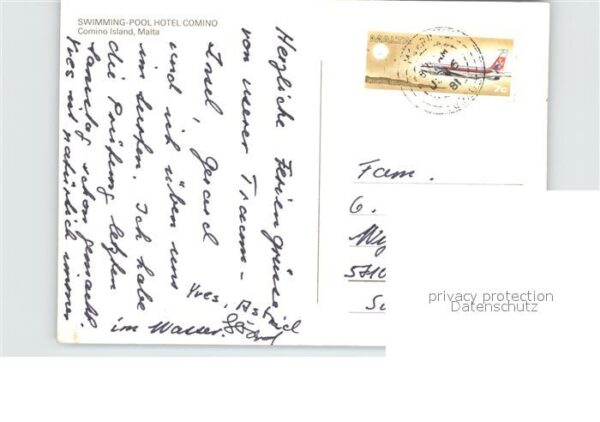 SWIMMING-POOL HOTEL COMINO
Comino Island, Malta
Herzliche Feriengrüsse
von unserer Traum-
Insel, Gerard
und ich üben uns
im Surfen. Ich habe
die Prüfung letzten
Samstag schon gemacht.
Yves ist natürlich immer
im Wasser.
Yves, Astrid
MALTA
7c
Fam.
G.
5710
privacy protection
Datenschutz